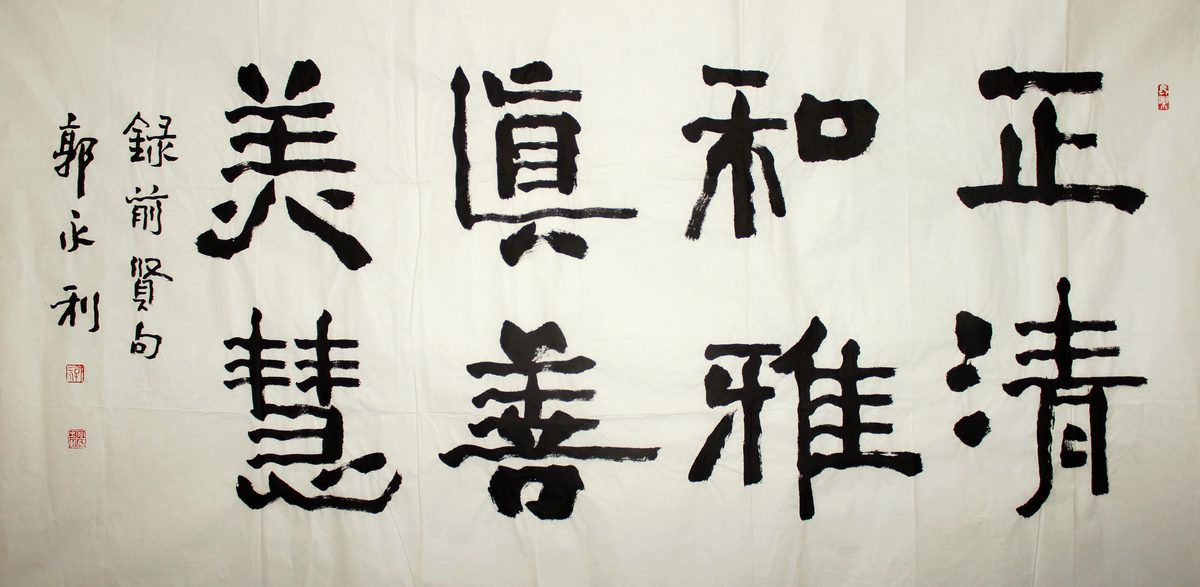 正清
和雅
眞善
美慧
録前賢句
郭永利